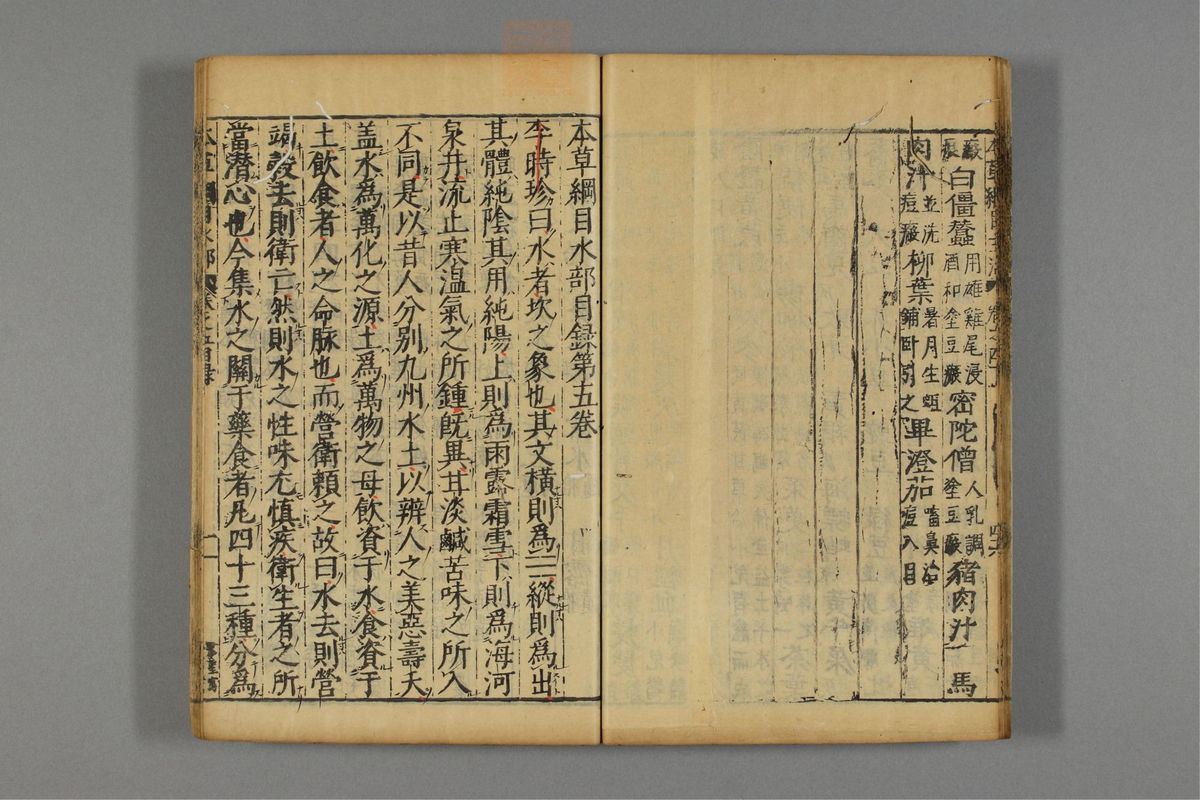 瘢白僵蠶用雄雞尾浸酒和塗豆瘢密陀僧人乳調塗豆瘢豬肉汁馬
肉汁並洗痘瘢柳葉暑月生蛆鋪卧引之畢澄茄嗅鼻治痘入目
本草綱目水部目録第五卷
李時珍曰水者坎之象也其文橫則爲三縱則爲出
其體純陰其用純陽上則爲雨露霜雪下則爲海河
泉井流止寒温氣之所鍾旣異甘淡鹹苦味之所入
不同是以昔人分别九州水土以辨人之美惡壽夭
盖水爲萬化之源土爲萬物之母飲資于水食資于
土飲食者人之命脉也而營衛頼之故曰水去則營
竭穀去則衛亡然則水之性味尤慎疾衛生者之所
當潛心也今集水之關于藥食者凡四十三種分爲
本草綱目水部 卷之五目録